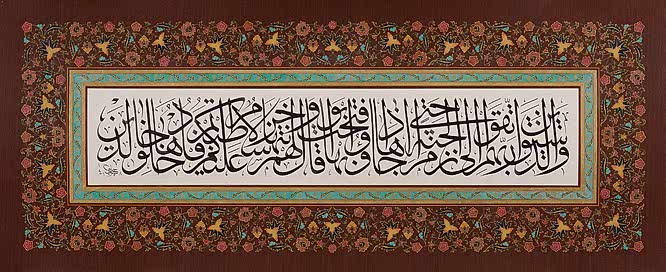 وسيق الذين اتقوا ربهم إلى الجنة زمرا حتى إذا جاءوها وفتحت أبوابها وقال لهم خزنتها سلام عليكم طبتم فادخلوها خالدين